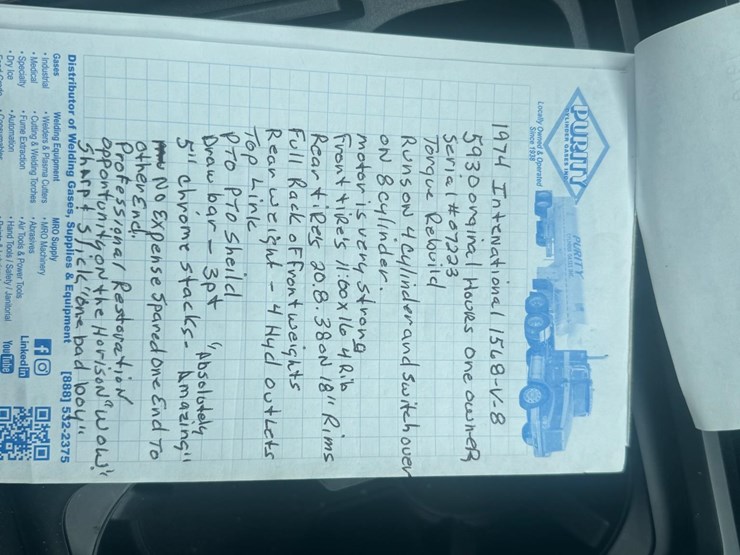 PURITY
CYLINDER GASES INC
Locally Owned & Operated
Since 1938
PURITY
1974 International 1568-V-8
5930 original Hours one owner
Serial # 07223
Torque Rebuild
Runs on 4 cylinder and switch over
on 8 cylinder.
motor is very strong
Front tire's 11:00x16 4 Rib
Rear tires 20.8.38 on 18" Rims
Full Rack of Front weights
Rear weight - 4 Hyd outlets
Top Link
PTO PTO Sheild
Draw bar - 3pt "Absolutely
5" chrome stacks - Amazing"
NO Expense Spared one End to
other End,
Professional Restoration
opportunity on the Horison "WOW!"
Sharp & Slick "one bad boy"
Distributor of Welding Gases, Supplies & Equipment [888] 532-2375
Gases
• Industrial
• Medical
• Specialty
• Dry Ice
Welding Equipment
• Welders & Plasma Cutters
• Cutting & Welding Torches
• Fume Extraction
• Automation
MRO Supply
• MRO Machinery
• Abrasives
• Air Tools & Power Tools
• Hand Tools / Safety / Janitorial
Linked in
You Tube